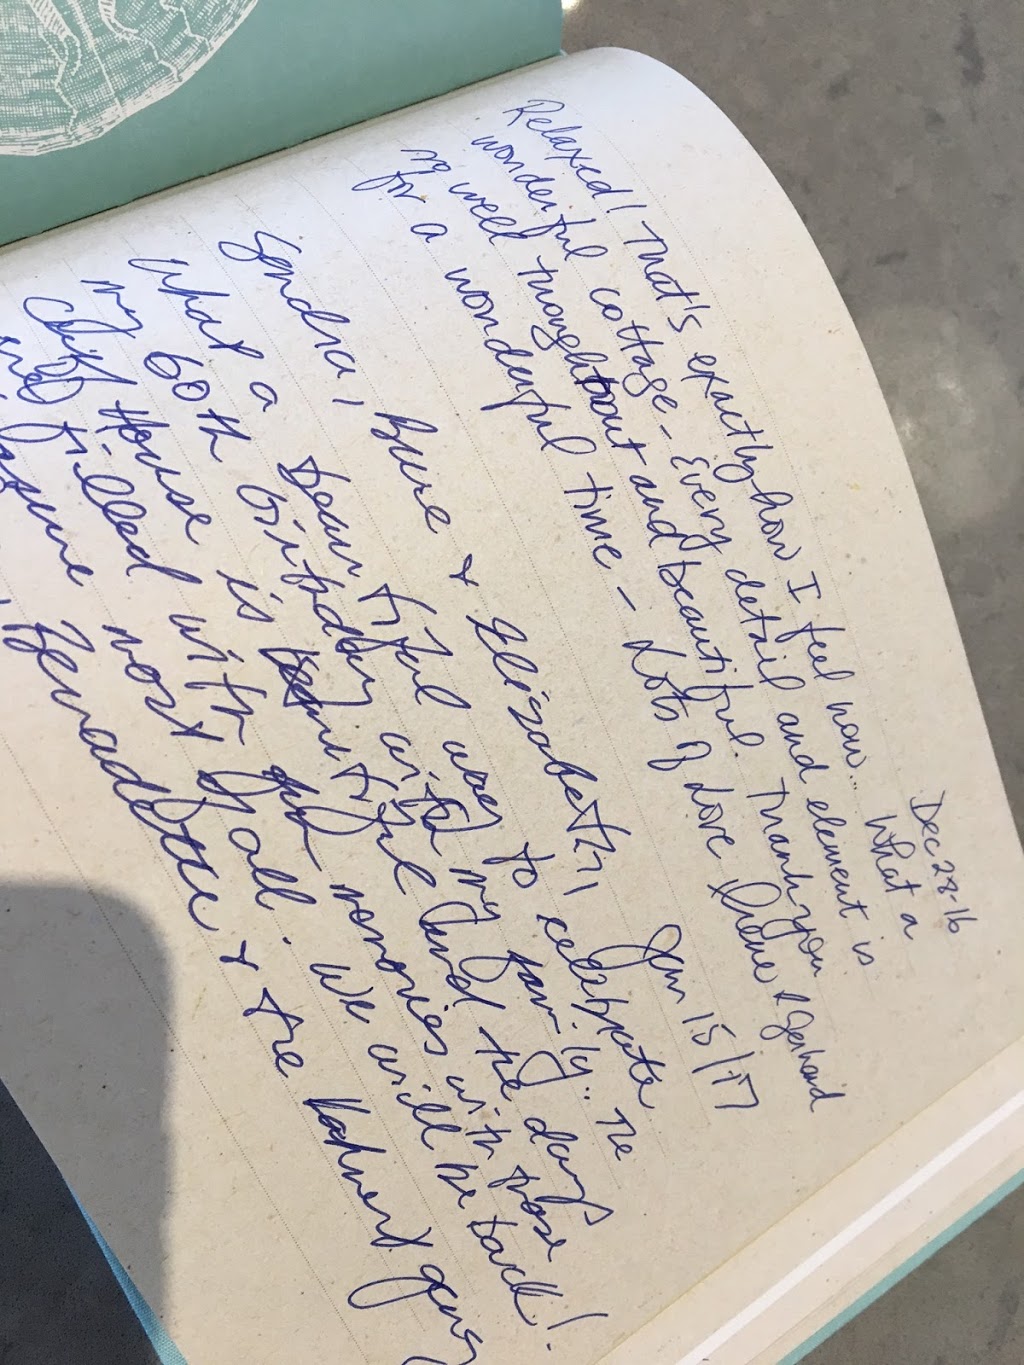 Dec 28-16
Relaxed! That's exactly how I feel now... What a
wonderful cottage - Every detail and element is
so well thought out and beautiful. Thank you
for a wonderful time - Lots of Love & Gerhard
Jan 15/17
Sandra, Bruce & Elizabeth,
What a beautiful way to celebrate
my 60th birthday with my family.. The
Cliff House is beautiful and the days
filled with memories with those
most of all. We will be back!
Bernadette & the gang